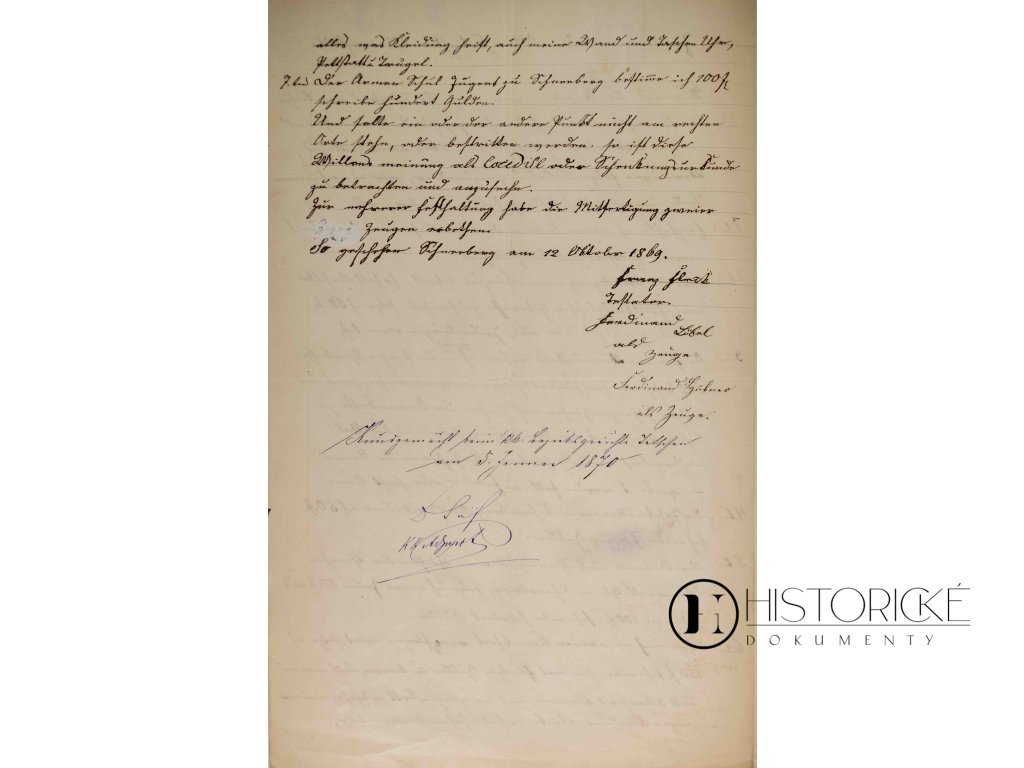 alles was Kleidung heist, auch meine Wand und Taschen Uhr,
Pettstatt u Trugel.
7.tens Der Armen Schul Jugent zu Schneeberg bestimme ich 100 fl
schreibe hundert Gulden.
Und sollte ein oder der andere Punkt nicht am rechten
Orte stehn, oder bestritten werden. so ist diese
Willens meinung als Codedill oder Schenkungsurkunde
zu betrachten und anzusehn.
Zur mehrerer Festhaltung habe die Mitfertigung zweier
Zeugen erbethen.
So geschehen Schneeberg am 12 Oktober 1869.
Franz
Testator.
Ferdinand
als
Zeuge
Ferdinand Hübner
als Zeuge.
Kundgemacht beim kk. Bezirksgerichte Tetschen
am 5. Jenner 1870
HISTORICKÉ
DOKUMENTY